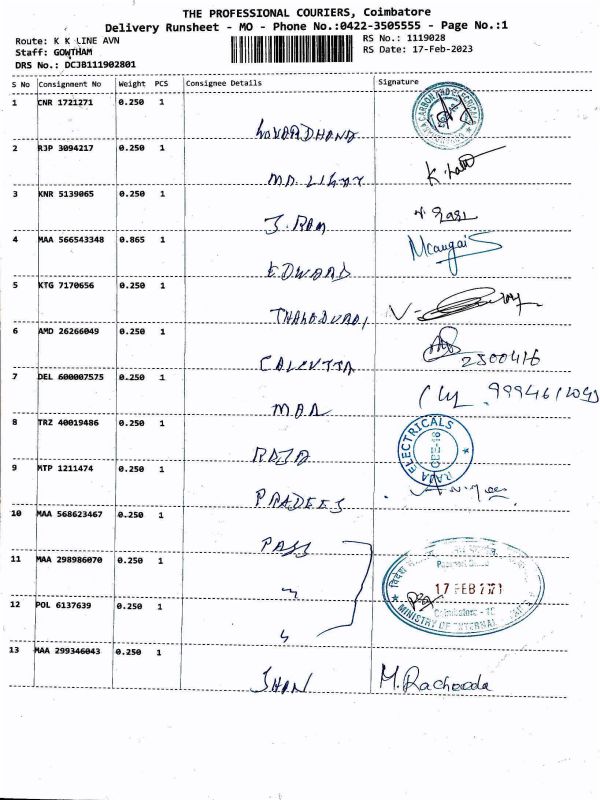 THE PROFESSIONAL COURIERS, Coimbatore
Delivery Runsheet - MO - Phone No.:0422-3505555 - Page No.:1
Route: K K LINE AVN
RS No.: 1119028
Staff: GOWTHAM
RS Date: 17-Feb-2023
DRS No.: DCJB111902801
S No Consignment No Weight PCS Consignee Details Signature
1 CNR 1721271 0.250 1
2 RJP 3094217 0.250 1
3 KNR 5139065 0.250 1
J. RAM
4 MAA 566543348 0.865 1
EDWARD
5 KTG 7170656 0.250 1
6 AMD 26266049 0.250 1
CALCUTTA 2500416
7 DEL 600007575 0.250 1
8 TRZ 40019486 0.250 1
RAJA
RAJA ELECTRICALS
CBE-18
9 MTP 1211474 0.250 1
PRADEEJ
10 MAA 568623467 0.250 1
PASS
11 MAA 298986070 0.250 1
17 FEB
12 POL 6137639 0.250 1
Coimbatore
MINISTRY OF EXTERNAL
13 MAA 299346043 0.250 1
M. Rachooda